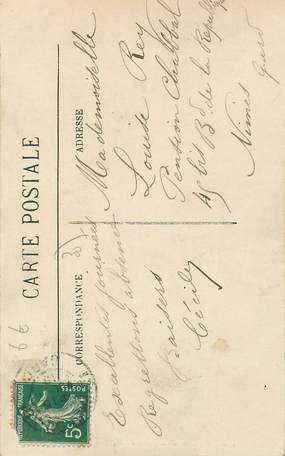 CARTE POSTALE
CORRESPONDANCE
Excellentes journées
Regrettons absence
Baisers
Cécile
ADRESSE
Mademoiselle
Louise Rey
Pension
45 bis Bd de la République
Nimes
Gard
66
RÉPUBLIQUE FRANÇAISE
POSTES
5c